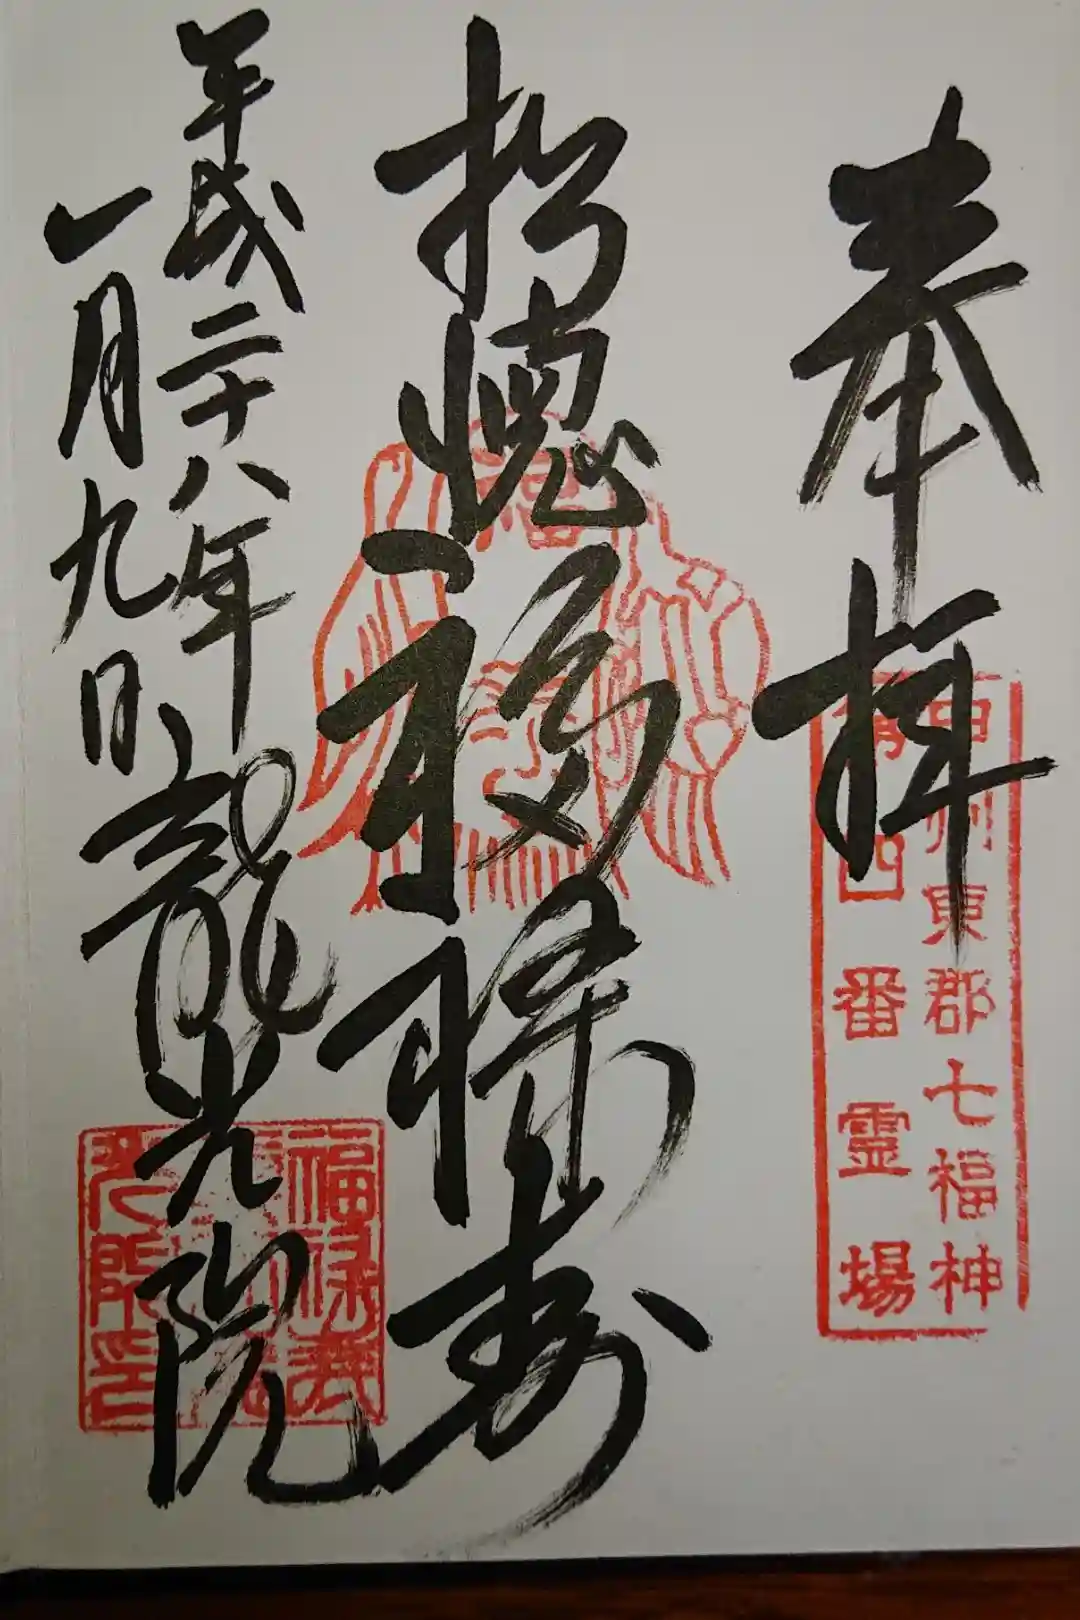 奉拝
甲州東郡七福神
第四番霊場
福禄寿
平成二十八年
一月九日
龍光院
福禄寿